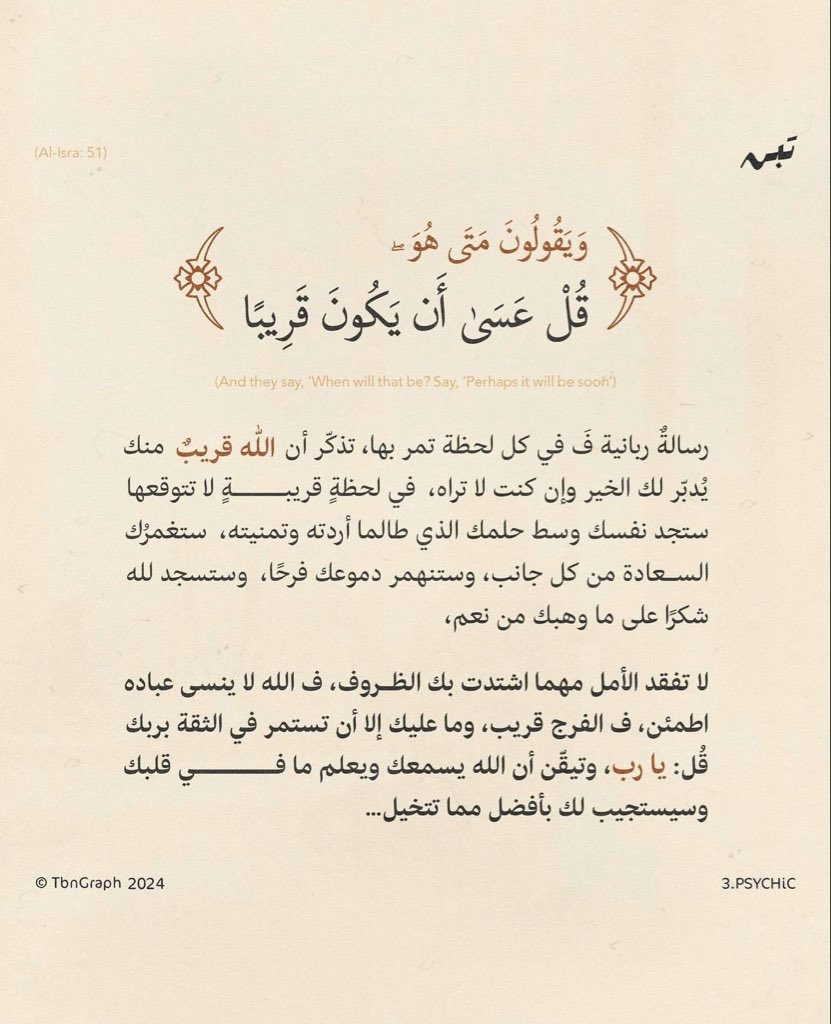 (Al-Isra: 51)
تبن
وَيَقُولُونَ مَتَى هُوَ ۖ
قُلْ عَسَىٰ أَن يَكُونَ قَرِيبًا
(And they say, ‘When will that be? Say, ‘Perhaps it will be soon’)
رسالةٌ ربانية فَ في كل لحظة تمر بها، تذكّر أن الله قريبٌ منك
يُدبّر لك الخير وإن كنت لا تراه، في لحظةٍ قريبـــــــةٍ لا تتوقعها
ستجد نفسك وسط حلمك الذي طالما أردته وتمنيته، ستغمرُك
الســعادة من كل جانب، وستنهمر دموعك فرحًا، وستسجد لله
شكرًا على ما وهبك من نعم،
لا تفقد الأمل مهما اشتدت بك الظــروف، ف الله لا ينسى عباده
اطمئن، ف الفرج قريب، وما عليك إلا أن تستمر في الثقة بربك
قُل: يا رب، وتيقّن أن الله يسمعك ويعلم ما فـــــــــي قلبك
وسيستجيب لك بأفضل مما تتخيل...
© TbnGraph 2024
3.PSYCHiC